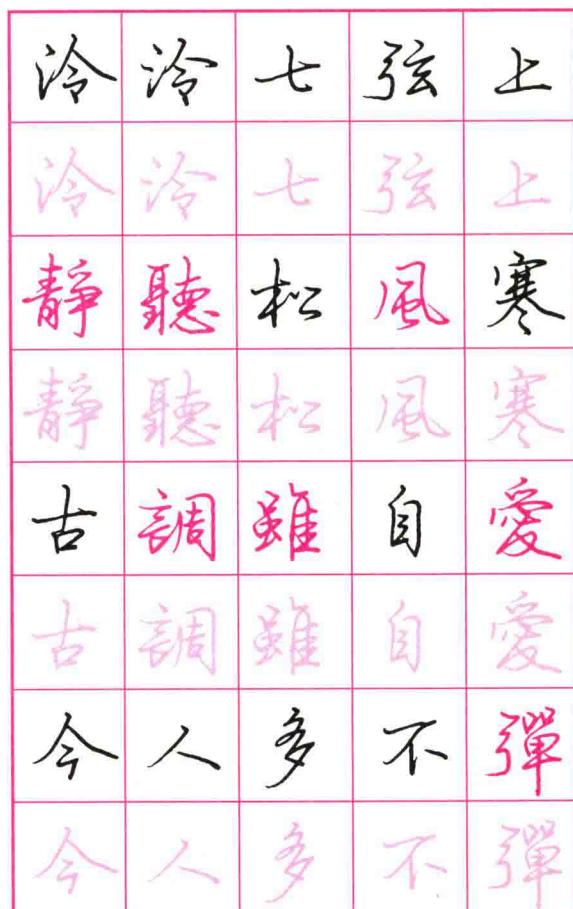 泠泠七弦上
泠泠七弦上
靜聽松風寒
靜聽松風寒
古調雖自愛
古調雖自愛
今人多不彈
今人多不彈